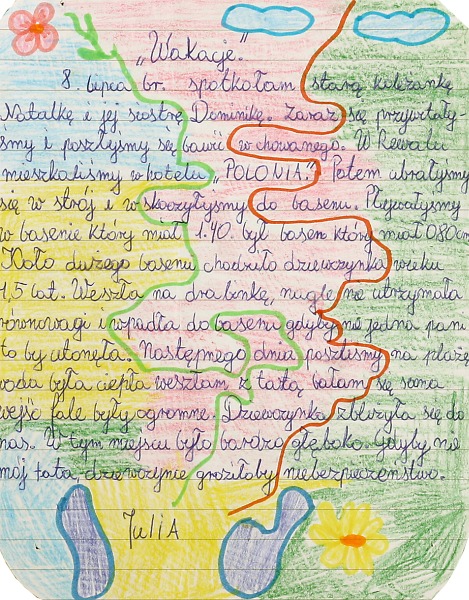 „Wakacje."
8. lipca br. spotkałam starą koleżankę
Natalkę i jej siostrę Dominikę. Zaraz się przywitały-
śmy i poszłyśmy się bawić w chowanego. W Rewalu
mieszkaliśmy w hotelu „POLONIA." Potem ubrałyśmy
się w strój i wskoczyłyśmy do basenu. Pływałyśmy
w basenie który miał 1.40. był basen który miał 0,80cm
Koło dużego basenu chodziła dziewczynka wieku
1,5 lat. Weszła na drabinkę, nagle nie utrzymała
równowagi i wpadła do basenu gdyby nie jedna pani
to by utonęła. Następnego dnia poszliśmy na plażę
woda była ciepła weszłam z tatą bałam się sama
wejść fale były ogromne. Dziewczynka zbliżyła się do
nas. W tym miejscu było bardzo głęboko. Gdyby nie
mój tata, dziewczynie groziłoby niebezpieczeństwo.
Julia